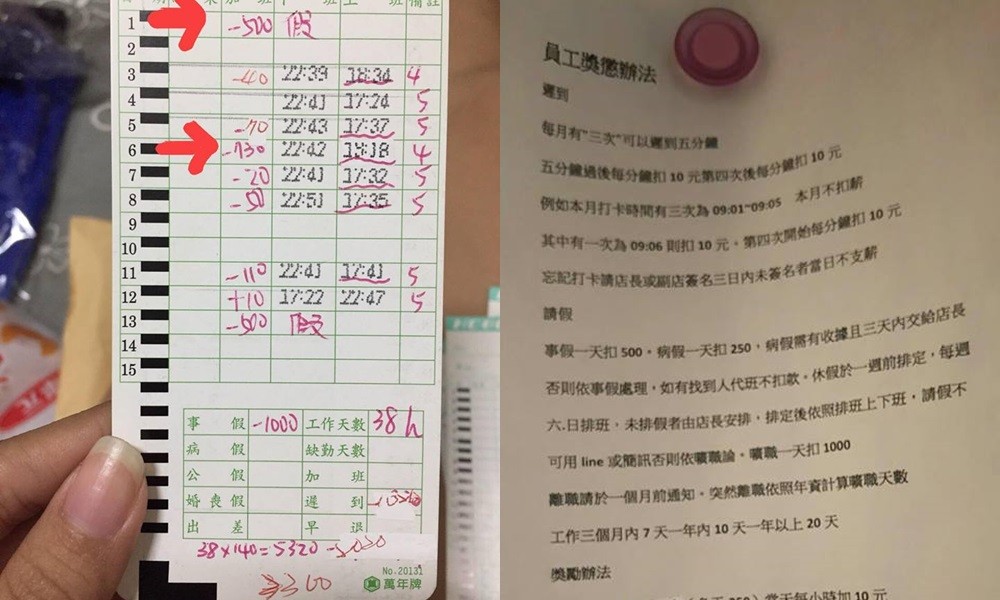 加 班 下 班 上 班 備註
1 -500 假
2
3 -40 22:39 18:34 4
4 22:41 17:24 5
5 -70 22:43 17:37 5
6 -730 22:42 18:18 4
7 -20 22:41 17:32 5
8 -50 22:51 17:35 5
9
10
11 -110 22:41 17:41 5
12 +10 17:22 22:47 5
13 -500 假
14
15
事 假 -1000 工作天數 38h
病 假 缺勤天數
公 假 加 班
婚喪假 遲 到
出 差 早 退
38×140=5320
No.20131
萬年牌
員工獎懲辦法
遲到
每月有"三次"可以遲到五分鐘
五分鐘過後每分鐘扣 10 元第四次後每分鐘扣 10 元
例如本月打卡時間有三次為 09:01~09:05 本月不扣薪
其中有一次為 09:06 則扣 10 元。第四次開始每分鐘扣 10 元
忘記打卡請店長或副店簽名三日內未簽名者當日不支薪
請假
事假一天扣 500。病假一天扣 250，病假需有收據且三天內交給店長
否則依事假處理，如有找到人代班不扣款。休假於一週前排定，每週
六.日排班，未排假者由店長安排，排定後依照排班上下班，請假不
可用 line 或簡訊否則依曠職論。曠職一天扣 1000
離職請於一個月前通知。突然離職依照年資計算曠職天數
工作三個月內 7 天一年內 10 天一年以上 20 天
獎勵辦法
250）當天每小時加 10 元